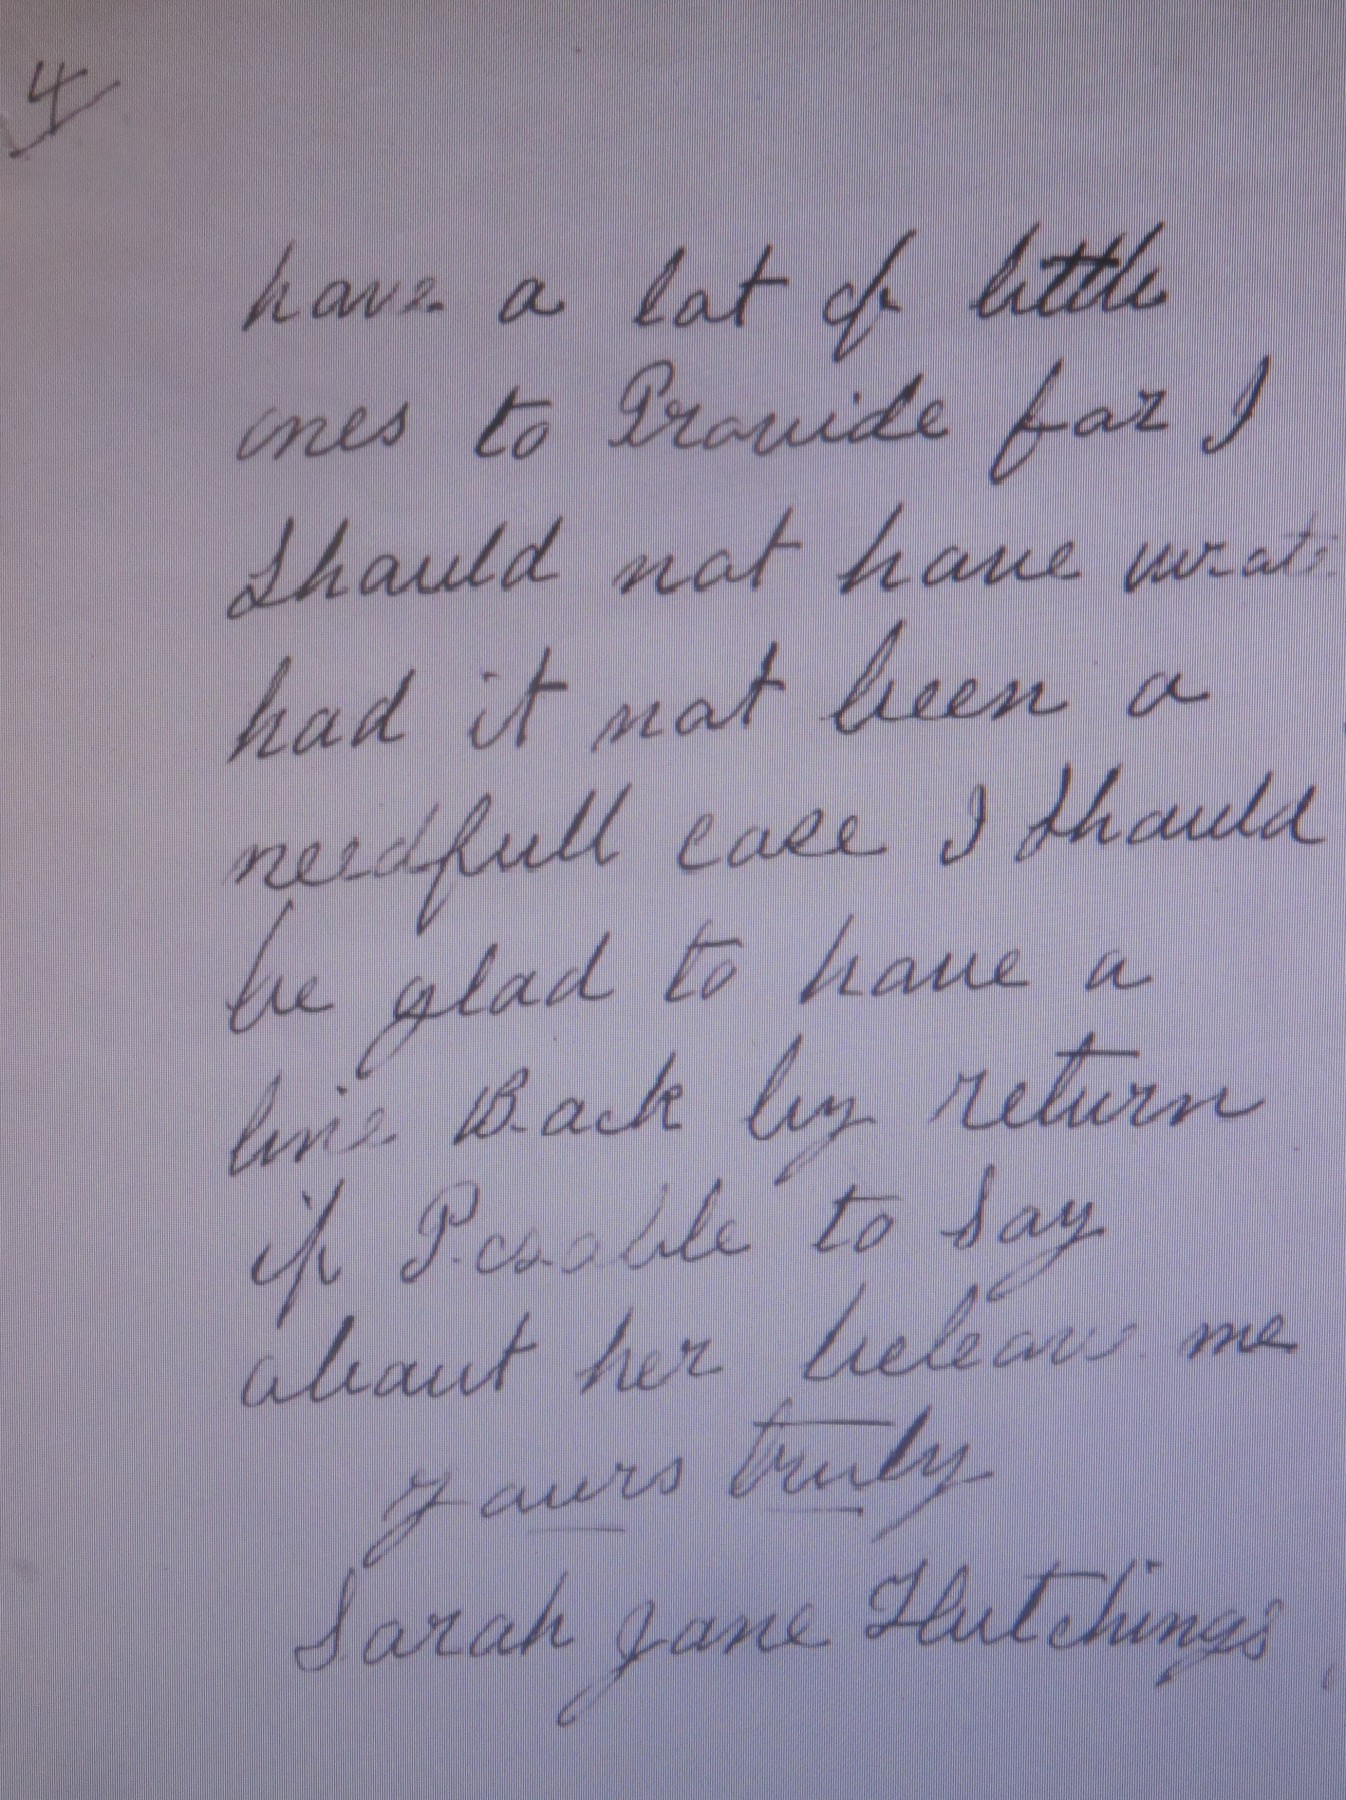 4
have a lot of little
ones to Provide for I
Should not have wrote
had it not been a
needfull case I should
be glad to have a
line Back by return
if Possable to say
about her beleave me
yours truly
Sarah Jane Hutchings